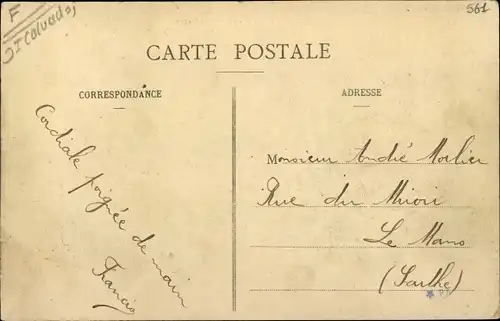 F
561
CARTE POSTALE
CORRESPONDANCE
ADRESSE
Cordiale poignée de main
Francis
Monsieur André Morlier
Rue du
Le Mans
(Sarthe)